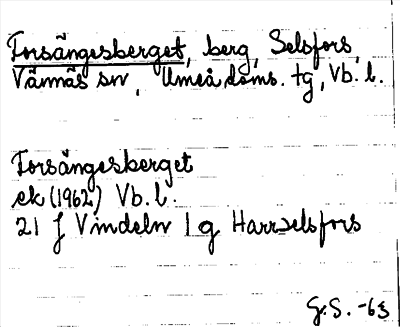 Forsängesberget, berg, Selsfors,
Vännäs sn, Umeå doms. tg, Vb. l.
Forsängesberget
ek (1962) Vb. l.
21 J Vindeln l g Harrselsfors
G.S. -63